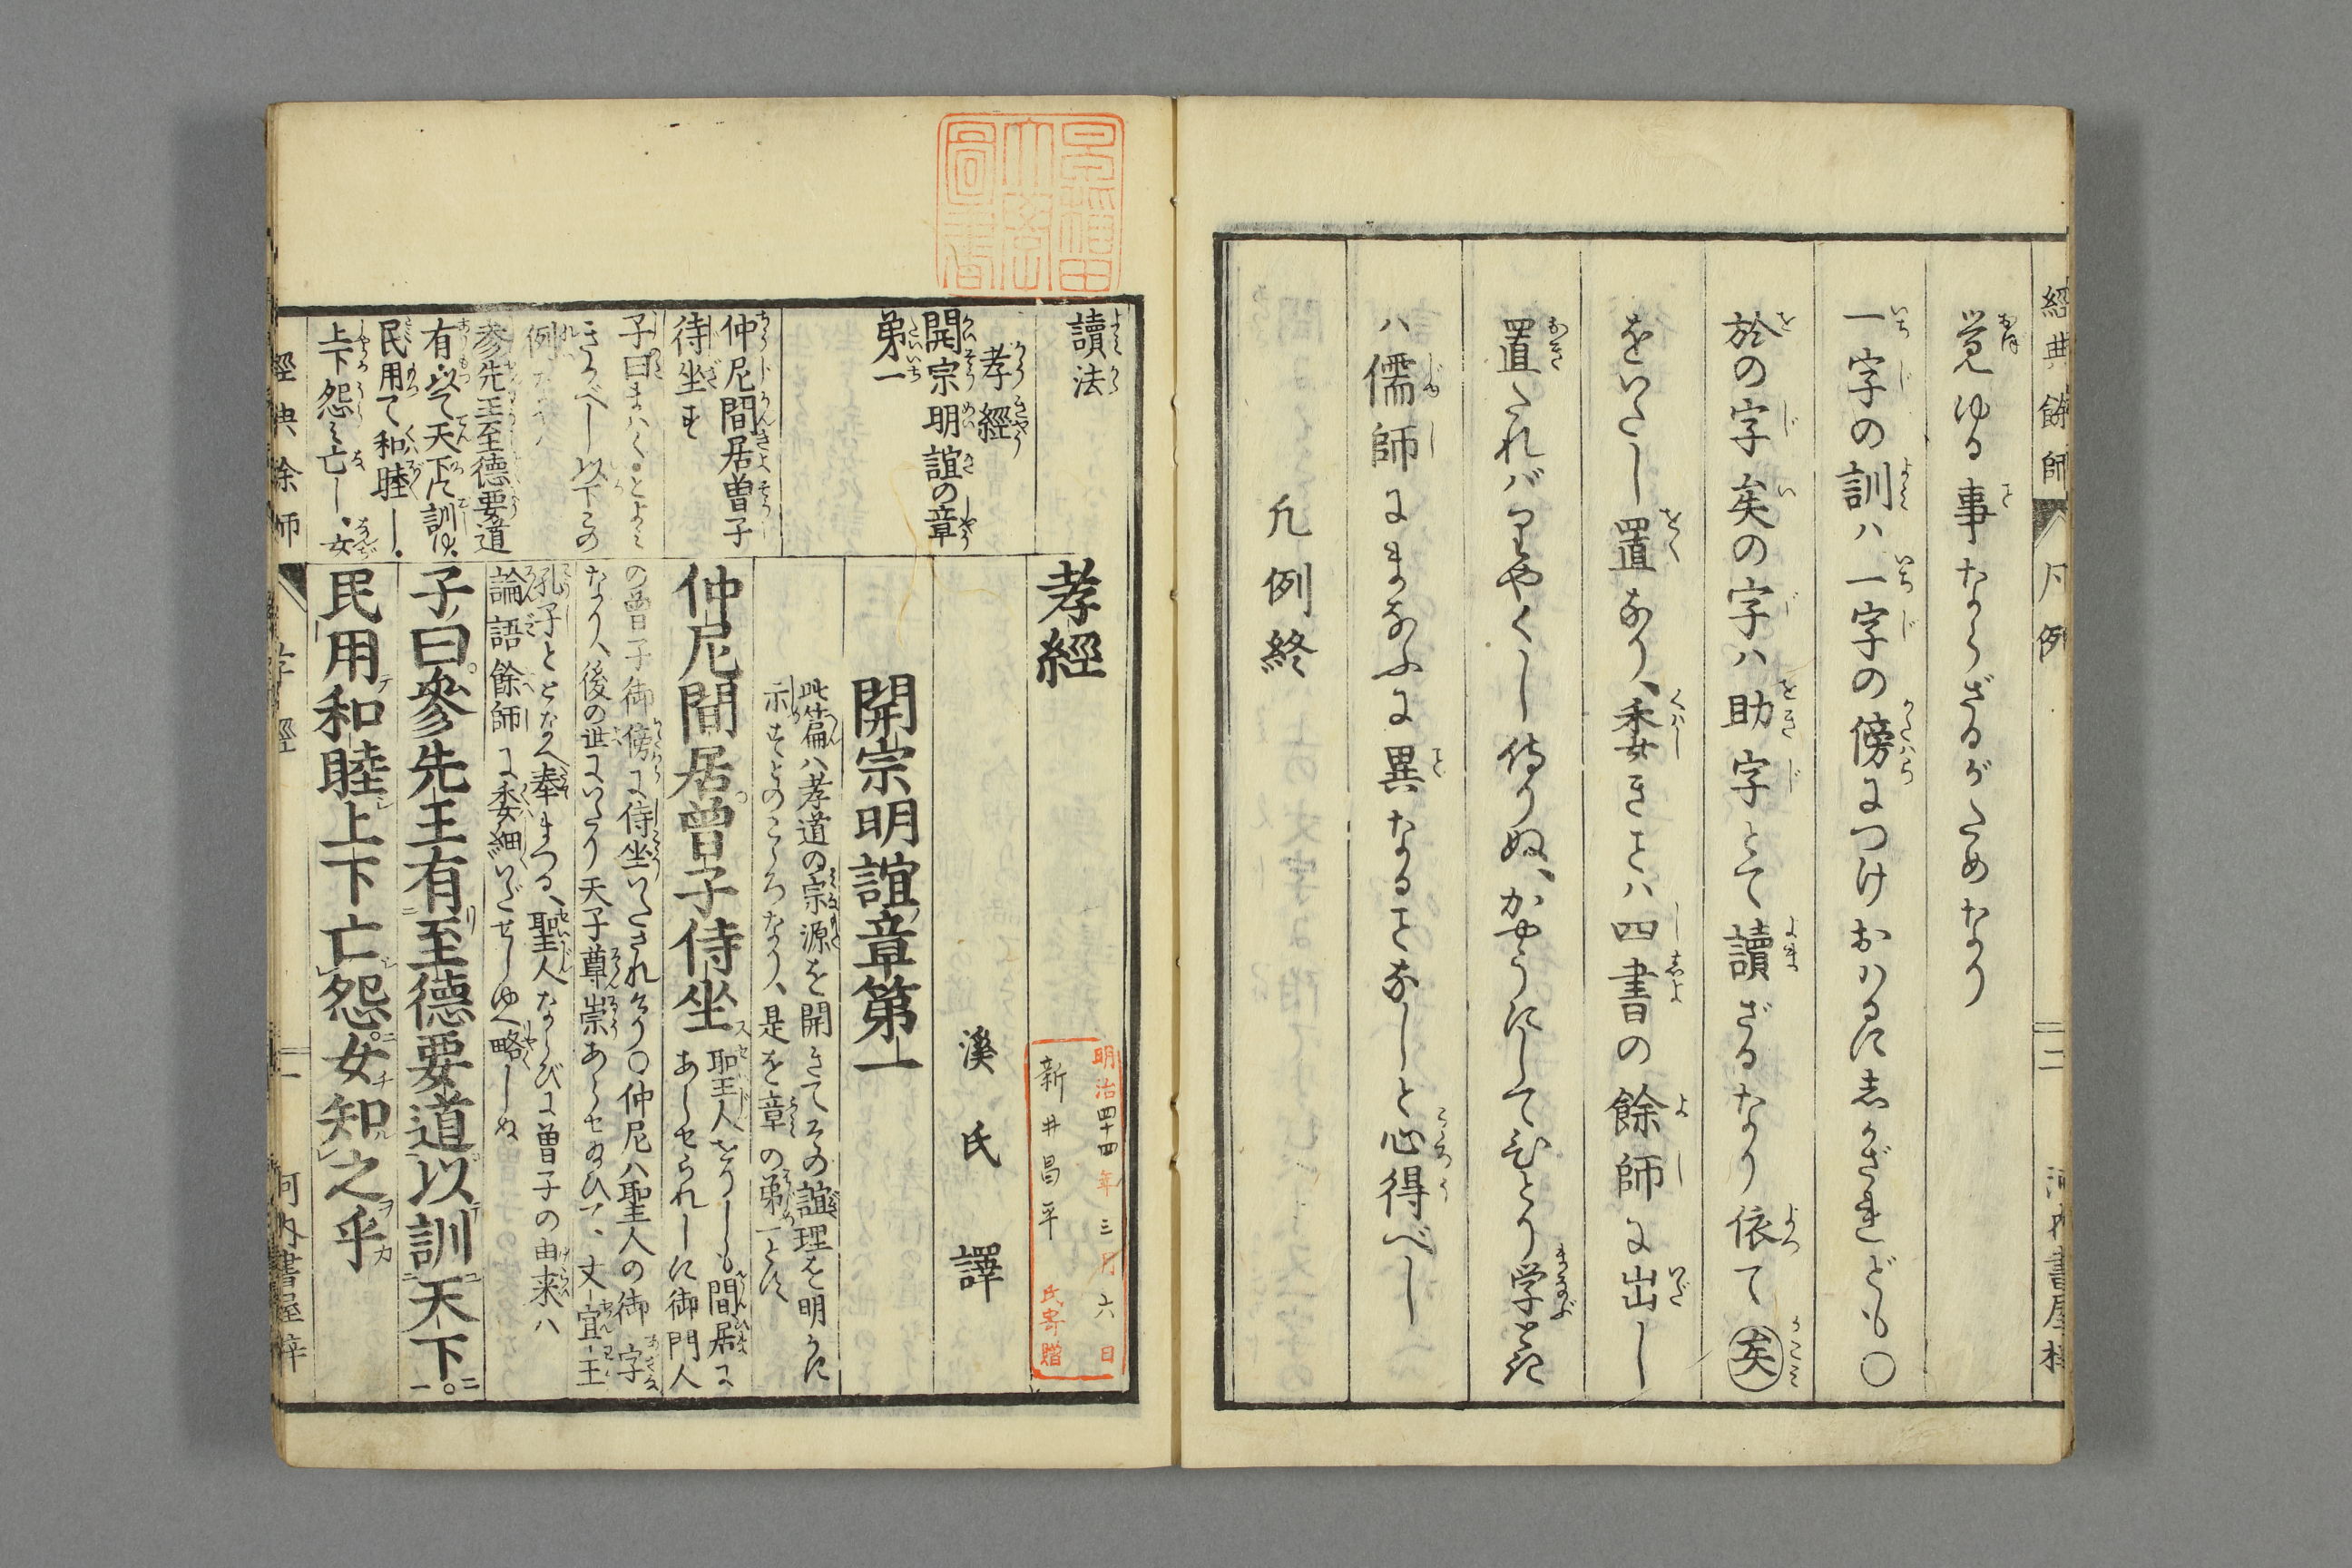 經典餘師 凡例 二
覚ゆる事ならざるがためなり
一字の訓ハ一字の傍につけおハるに志かざれども〇
於の字矣の字ハ助字とて讀ざるなり依て矣
をいたし置なり、委きヿハ四書の餘師に出し
置たれバ
ハ儒師にまなふに異なるヿなしと心得べし
凡例終
早稲田大學圖書
讀法
孝經
開宗明誼の章
第一
仲尼間居曽子
侍坐す
子曰まハく・とよミ
きるべし以下この
例なり
参先王至德要道
有・以て天下を訓ゆ、
民用て和睦し・
上下怨ミ亡し、女
孝經
明治四十四年三月六日
新井昌平氏寄贈
溪氏 譯
開宗明誼章第一
此篇ハ孝道の宗源を開きてその誼理を明かに
示すとのこゝろなり、是を章の第一とす
仲尼間居曽子侍坐
聖人をりしも間居に
あらせられしに御門人
の曽子御傍に侍坐いたされたり〇仲尼ハ聖人の御字
なり、後の世にいたり天子尊崇あらせ給ひて、文宣王
孔子ととなへ奉まつる、聖人ならびに曽子の由来ハ
論語餘師に委細いだせしゆへ略しぬ
子曰。參先王有至德要道以訓天下。
民用和睦上下亡怨。女知之乎
經典餘師 孝經 一 河内書屋梓